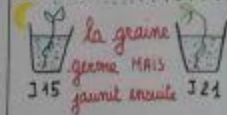 la graine
germe MAIS
jaunit ensuite
J15
J21